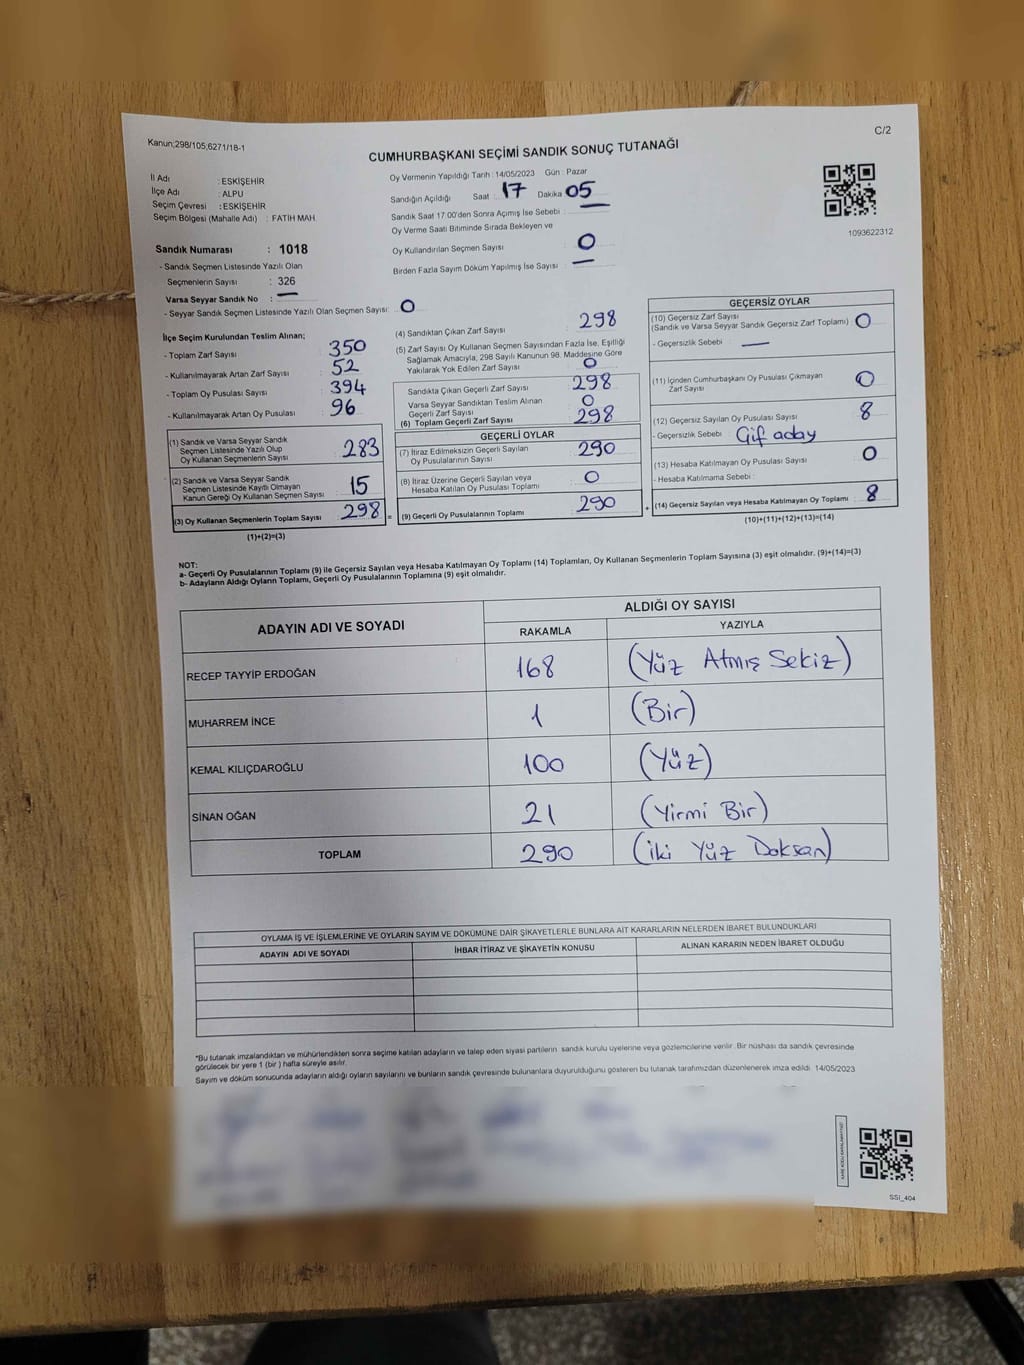 Kanun;298/105;6271/18-1
C/2
CUMHURBAŞKANI SEÇİMİ SANDIK SONUÇ TUTANAĞI
İl Adı : ESKİŞEHİR
İlçe Adı : ALPU
Seçim Çevresi : ESKİŞEHİR
Seçim Bölgesi (Mahalle Adı) : FATİH MAH.
Sandık Numarası : 1018
- Sandık Seçmen Listesinde Yazılı Olan
Seçmenlerin Sayısı : 326
Varsa Seyyar Sandık No : —
- Seyyar Sandık Seçmen Listesinde Yazılı Olan Seçmen Sayısı: 0
Oy Vermenin Yapıldığı Tarih : 14/05/2023 Gün : Pazar
Sandığın Açıldığı Saat : 17 Dakika 05
Sandık Saat 17.00'den Sonra Açımış İse Sebebi : —
Oy Verme Saati Bitiminde Sırada Bekleyen ve
Oy Kullandırılan Seçmen Sayısı 0
Birden Fazla Sayım Döküm Yapılmış İse Sayısı : —
1093622312
İlçe Seçim Kurulundan Teslim Alınan;
- Toplam Zarf Sayısı 350
- Kullanılmayarak Artan Zarf Sayısı 52
- Toplam Oy Pusulası Sayısı 394
- Kullanılmayarak Artan Oy Pusulası 96
(1) Sandık ve Varsa Seyyar Sandık
Seçmen Listesinde Yazılı Olup
Oy Kullanan Seçmenlerin Sayısı 283
(2) Sandık ve Varsa Seyyar Sandık
Seçmen Listesinde Kayıtlı Olmayan
Kanun Gereği Oy Kullanan Seçmen Sayısı 15
(3) Oy Kullanan Seçmenlerin Toplam Sayısı 298 =
(1)+(2)=(3)
(4) Sandıktan Çıkan Zarf Sayısı 298
(5) Zarf Sayısı Oy Kullanan Seçmen Sayısından Fazla İse, Eşitliği
Sağlamak Amacıyla; 298 Sayılı Kanunun 98. Maddesine Göre
Yakılarak Yok Edilen Zarf Sayısı 0
Sandıkta Çıkan Geçerli Zarf Sayısı 298
Varsa Seyyar Sandıktan Teslim Alınan
Geçerli Zarf Sayısı 0
(6) Toplam Geçerli Zarf Sayısı 298
GEÇERLİ OYLAR
(7) İtiraz Edilmeksizin Geçerli Sayılan
Oy Pusulalarının Sayısı 290
(8) İtiraz Üzerine Geçerli Sayılan veya
Hesaba Katılan Oy Pusulası Toplamı 0
(9) Geçerli Oy Pusulalarının Toplamı 290 +
GEÇERSİZ OYLAR
(10) Geçersiz Zarf Sayısı
(Sandık ve Varsa Seyyar Sandık Geçersiz Zarf Toplamı) 0
- Geçersizlik Sebebi : —
(11) İçinden Cumhurbaşkanı Oy Pusulası Çıkmayan
Zarf Sayısı 0
(12) Geçersiz Sayılan Oy Pusulası Sayısı 8
- Geçersizlik Sebebi : Çif aday
(13) Hesaba Katılmayan Oy Pusulası Sayısı 0
- Hesaba Katılmama Sebebi :
(14) Geçersiz Sayılan veya Hesaba Katılmayan Oy Toplamı 8
(10)+(11)+(12)+(13)=(14)
NOT:
a- Geçerli Oy Pusulalarının Toplamı (9) ile Geçersiz Sayılan veya Hesaba Katılmayan Oy Toplamı (14) Toplamları, Oy Kullanan Seçmenlerin Toplam Sayısına (3) eşit olmalıdır. (9)+(14)=(3)
b- Adayların Aldığı Oyların Toplamı, Geçerli Oy Pusulalarının Toplamına (9) eşit olmalıdır.
ADAYIN ADI VE SOYADI ALDIĞI OY SAYISI
RAKAMLA YAZIYLA
RECEP TAYYİP ERDOĞAN 168 (Yüz Atmış Sekiz)
MUHARREM İNCE 1 (Bir)
KEMAL KILIÇDAROĞLU 100 (Yüz)
SİNAN OĞAN 21 (Yirmi Bir)
TOPLAM 290 (iki Yüz Doksan)
OYLAMA İŞ VE İŞLEMLERİNE VE OYLARIN SAYIM VE DÖKÜMÜNE DAİR ŞİKAYETLERLE BUNLARA AİT KARARLARIN NELERDEN İBARET BULUNDUKLARI
ADAYIN ADI VE SOYADI İHBAR İTİRAZ VE ŞİKAYETİN KONUSU ALINAN KARARIN NEDEN İBARET OLDUĞU
*Bu tutanak imzalandıktan ve mühürlendikten sonra seçime katılan adayların ve talep eden siyasi partilerin sandık kurulu üyelerine veya gözlemcilerine verilir. Bir nüshası da sandık çevresinde
görülecek bir yere 1 (bir ) hafta süreyle asılır.
Sayım ve döküm sonucunda adayların aldığı oyların sayılarını ve bunların sandık çevresinde bulunanlara duyurulduğunu gösteren bu tutanak tarafımızdan düzenlenerek imza edildi. 14/05/2023
SSI_404